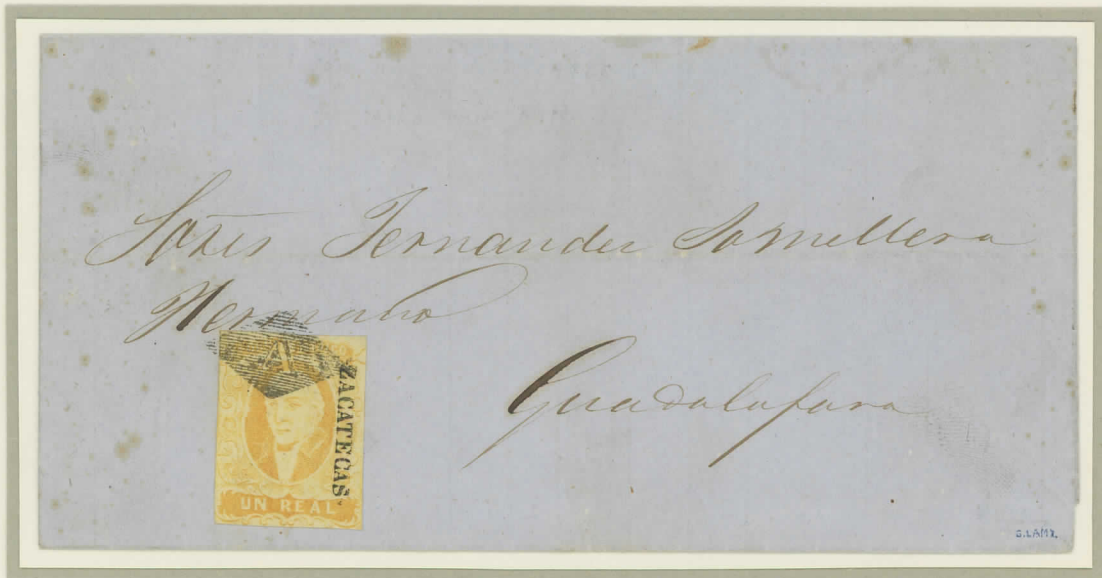 Sores Fernandez Somellera
Hermano
Guadalajara
A
ZACATECAS
UN REAL